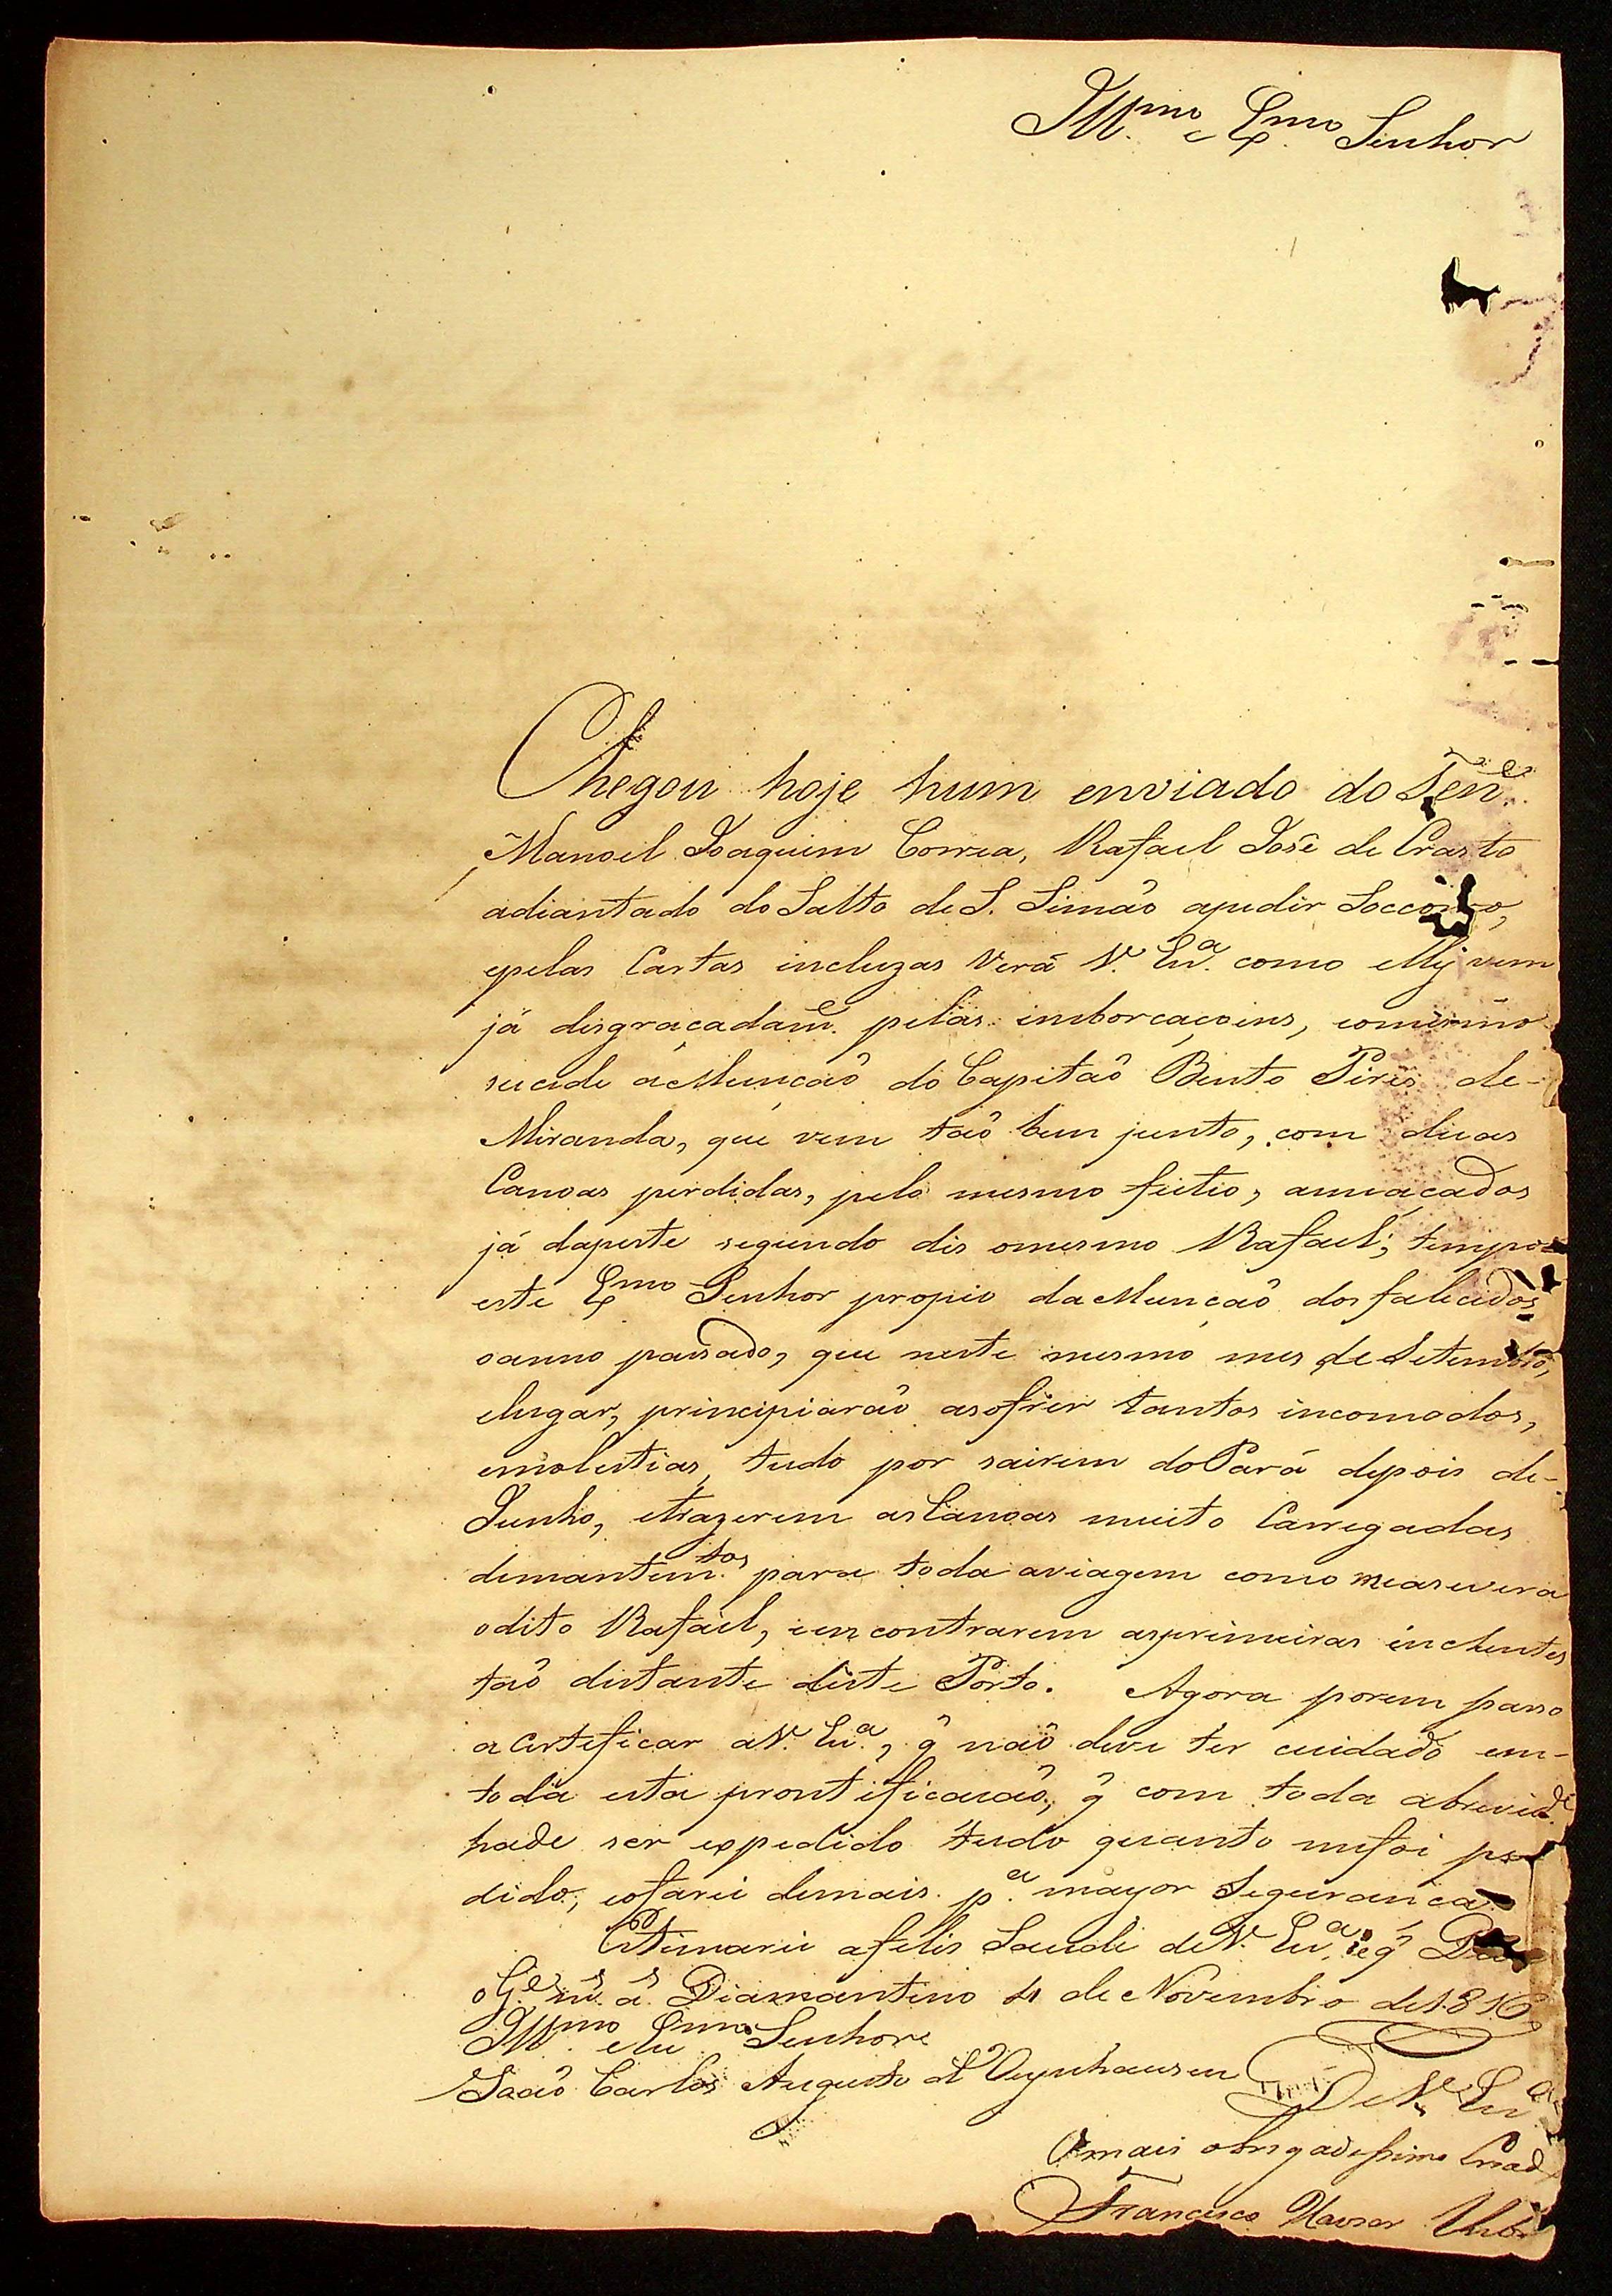 Ill.mo e Ex.mo Senhor
Chegou hoje hum enviado do Ten.e
Manoel Joaquim Correa, Rafael José de Crasto
adiantado do Salto de S. Simaõ apedir Soccorro,
epelas Cartas incluzas verá V. Ex.a como elle já vem
já disgraçadam.e pelas imborcaçoins, comêsmo
sucede áMunçaõ do Capitaõ Bento Pires de
Miranda, que vem taõ bem junto, com duas
Canoas perdidas, pelo mesmo feitio, ameaçados
já dapeste segundo dis omesmo Rafael; tempo
este Ex.mo Senhor propio daMunçaõ dos falecidos
oanno passado, que neste mesmo mes de Setembro,
elugar, principiaraõ asofrer tantos incomodos,
emolestias, tudo por sairem doPará depois de
Junho, etrazerem asCanoas muito Carregadas
demantem.tos para toda aviagem como measevera
odito Rafael, iencontrarem asprimeiras inchentes
taõ distante deste Porto. Agora porem passo
a certeficar aV. Ex.a, q̃ naõ deve ter cuidado em
toda esta prontificaçaõ, q̃ com toda abrevid.e
hade ser expedido tudo quanto mefoi pe
dido, eofarei demais p.a mayor Segurança.
Estimarei afelis Saude deV. Ex.a, eq̃ Deos
oG.e m.s a.s Diamantino 4 de Novembro de1816
Ill.mo e Ex.mo Senhor
Joaõ Carlos Augusto d'Oeynhausen
DeV. Ex.a
Omais obrigadissimo Criad
Francisco Xavier